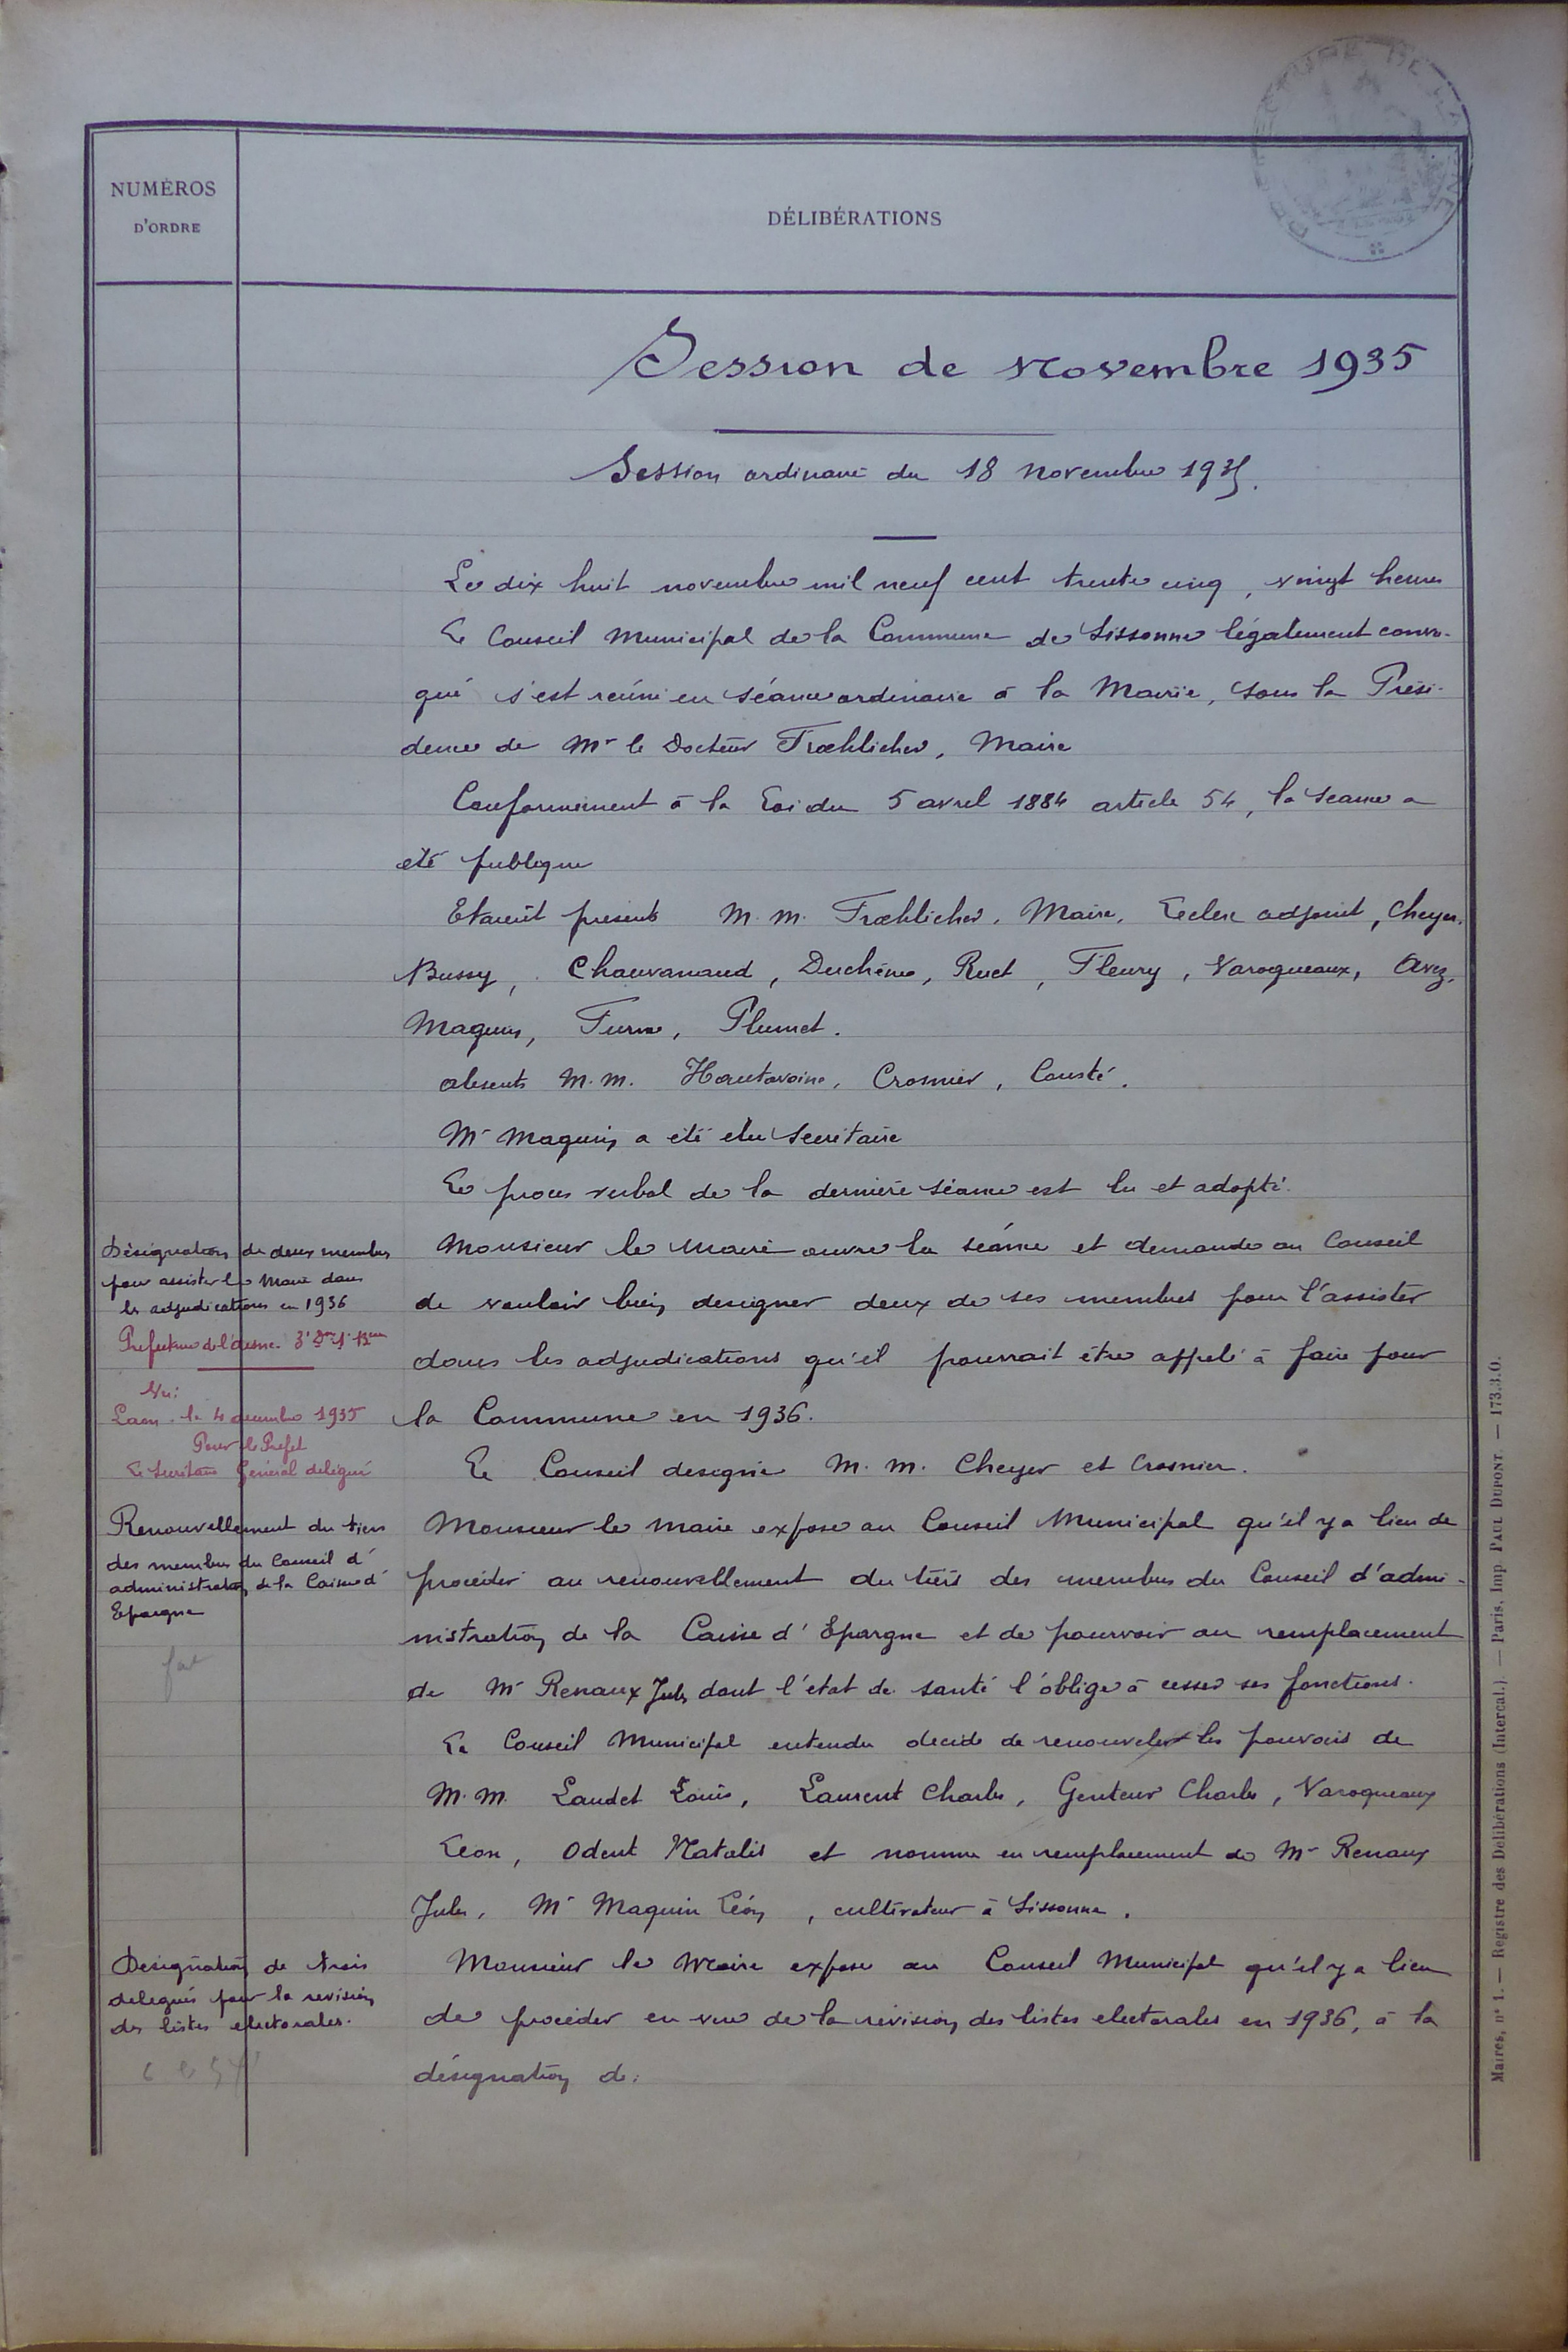 NUMÉROS
D'ORDRE
DÉLIBÉRATIONS
Session de Novembre 1935
Session ordinaire du 18 novembre 1935.
Le dix huit novembre mil neuf cent trente cinq, vingt heures
Le Conseil Municipal de la Commune de Sissonne légalement convo-
qué s'est réuni en séance ordinaire à la Mairie, sous la Prési-
dence de Mr le Docteur Froehlicher, Maire
Conformement à la Loi du 5 avril 1884 article 54, la seance a
été publique
Etaient présents M. M. Froehlicher, Maire, Leclerc adjoint, Cheyer,
Bussy, Chauvanaud, Duchêne, Ruet, Fleury, Varoqueaux, Avez,
Maquin, Turne, Plumet.
absents M. M. Hautavoine, Crosnier, Cousté.
Mr Maquin a été élu Secrétaire
Le proces verbal de la dernière séance est lu et adopté.
Désignation de deux membres
pour assister le Maire dans
les adjudications en 1936
Préfecture de l'Aisne. 3e Don 1er Beau
Vu:
Laon, le 4 décembre 1935
Pour le Préfet
Le Secrétaire Général délégué
Monsieur le Maire ouvre la séance et demande au Conseil
de vouloir bien designer deux de ses membres pour l'assister
dans les adjudications qu'il pourrait être appelé à faire pour
la Commune en 1936.
Le Conseil designe M. M. Cheyer et Crosnier.
Renouvellement du tiers
des membres du Conseil d'
administration de la Caisse d'
Epargne
fait
Monsieur le maire expose au Conseil Municipal qu'il y a lieu de
procéder au renouvellement du tiers des membres du Conseil d'admi-
nistration de la Caisse d'Epargne et de pourvoir au remplacement
de Mr Renaux Jules dont l'état de santé l'oblige à cesser ses fonctions.
Le Conseil Municipal entendu decide de renouveler les pouvoirs de
M. M. Laudet Louis, Laurent Charles, Genteur Charles, Varoqueaux
Leon, Odent Natalis et nomme en remplacement de Mr Renaux
Jules, Mr Maquin Léon, cultivateur à Sissonne.
Désignation de trois
delegués pour la revision
des listes electorales.
Monsieur le Maire expose au Conseil Municipal qu'il y a lieu
de procéder en vue de la révision des listes electorales en 1936, à la
désignation de:
Maires, n° 1. — Registre des Délibérations (Intercal.). — Paris, Imp. PAUL DUPONT. — 173.3.O.